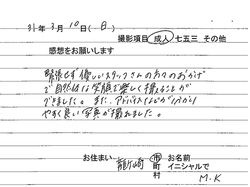 31年3月10日(日)
撮影項目 成人 七五三 その他
感想をお願いします
緊張せず優しいスタッフさんの方々のおかげ
で自然体な笑顔で楽しく撮ることが
できました。また、アドバイスなどが分かり
やすく良い写真が撮れました。
お住まい 龍ヶ崎 市町村 お名前 イニシャルで M.K